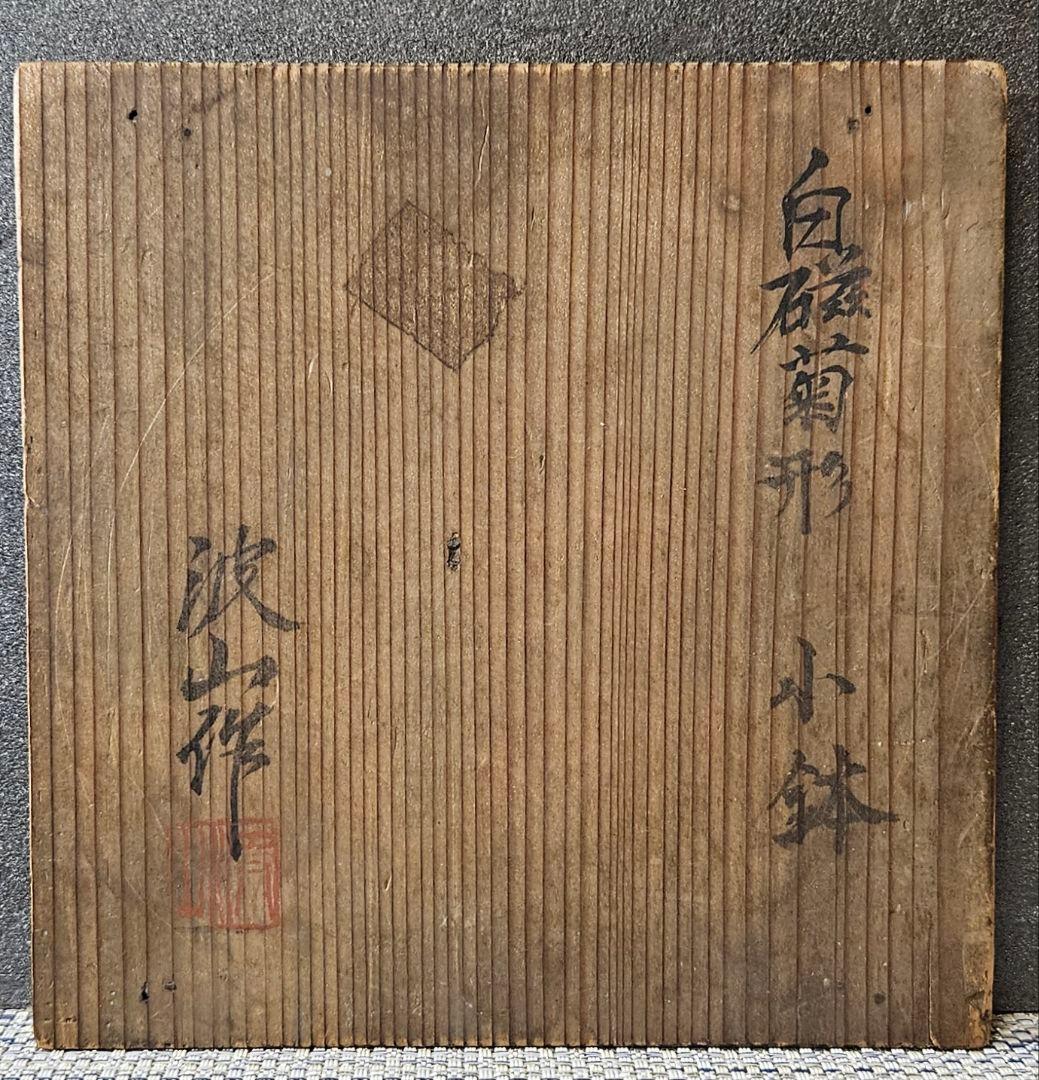 白磁菊形 小鉢
波山作